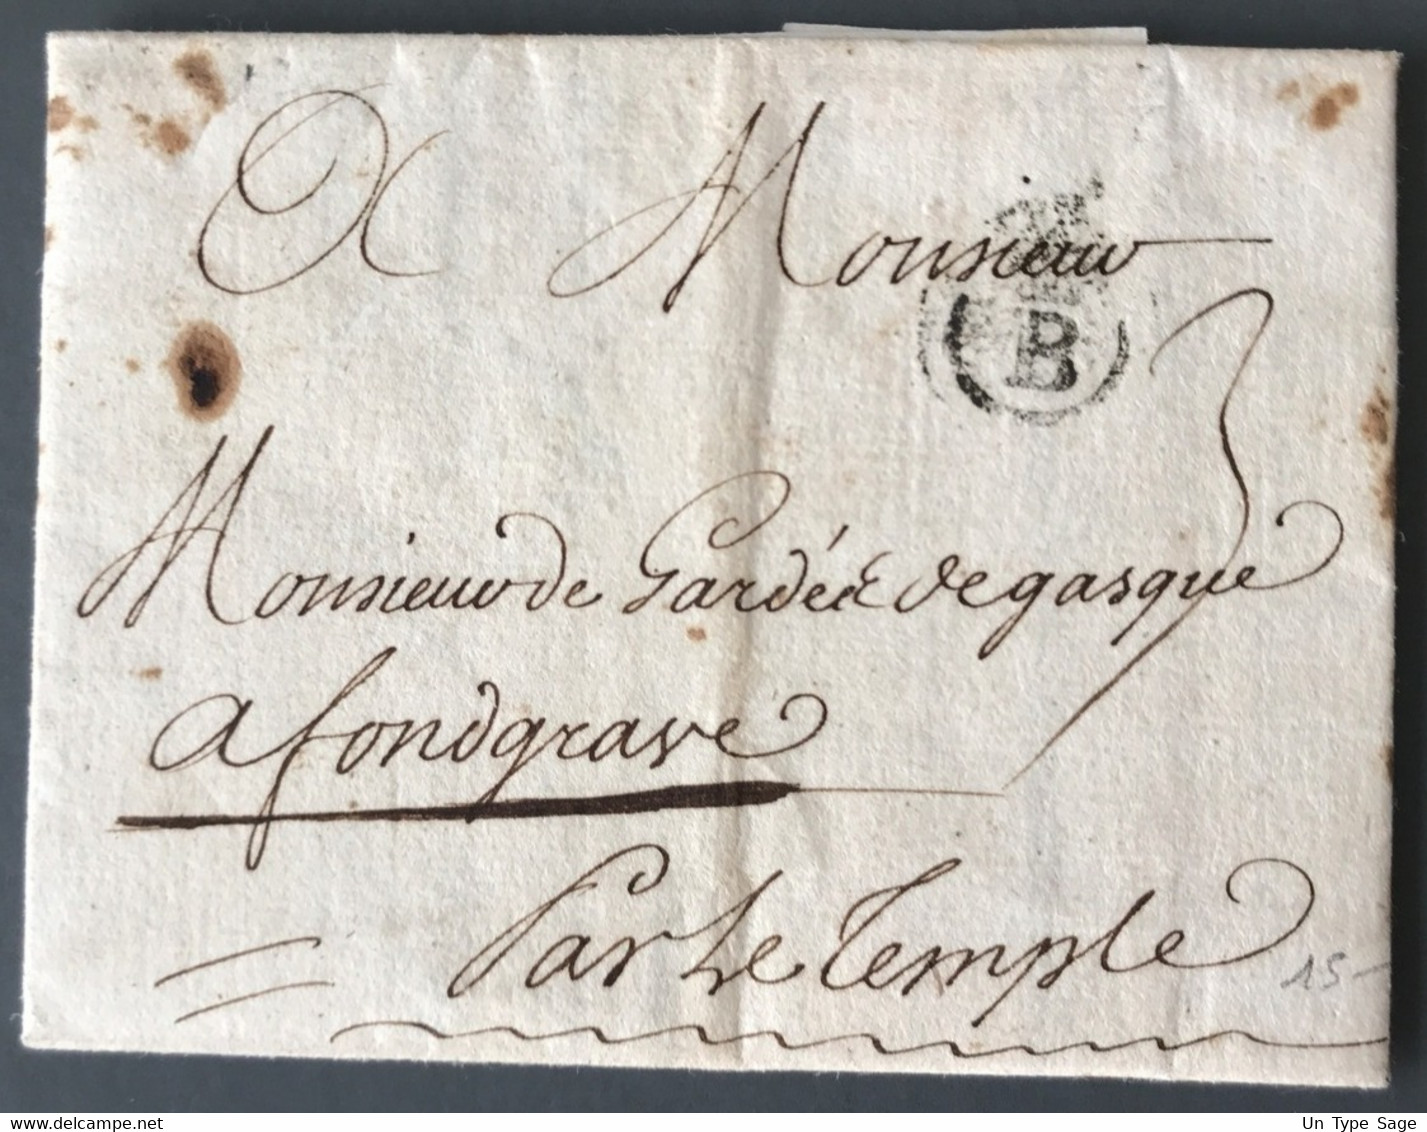 A Monsieur
B
Monsieur de Gardés de gasque
a fondgrave
Par Le Temple
15-
www.delcampe.net
Un Type Sage